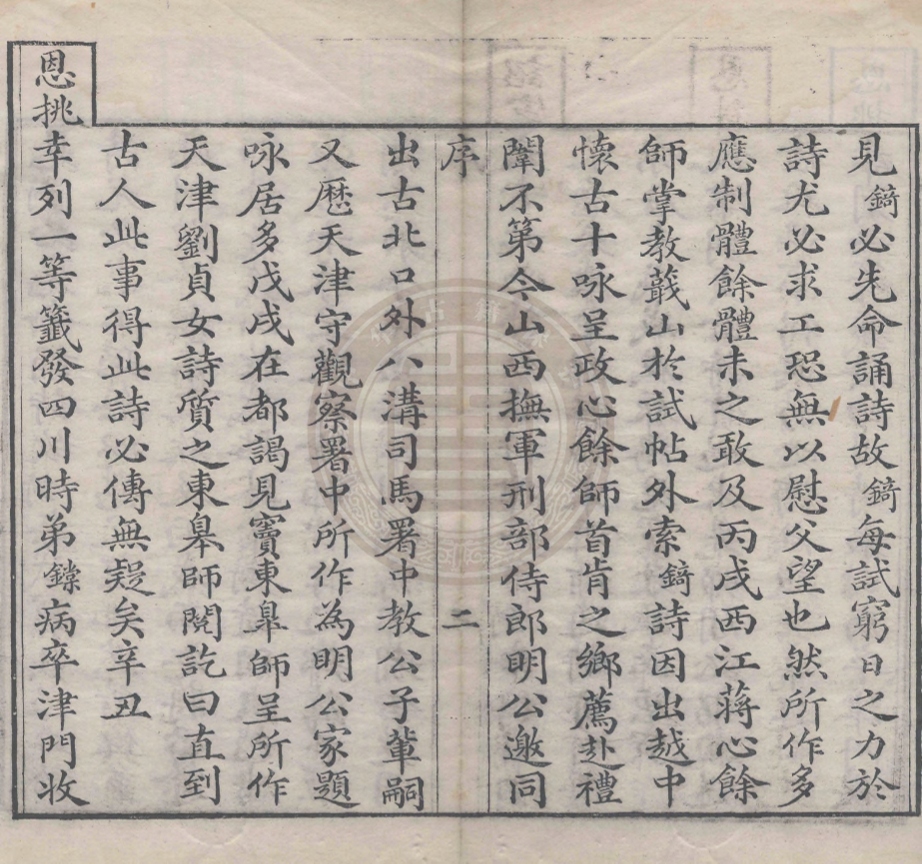 見錡必先命誦詩故錡每試窮日之力於
詩尤必求工恐無以慰父望也然所作多
應制體餘體未之敢及丙戌西江蔣心餘
師掌教蕺山於試帖外索錡詩因出越中
懷古十咏呈政心餘師首肯之鄉薦赴禮
闈不第今山西撫軍刑部侍郎明公邀同
序 二
出古北口外八溝司馬署中教公子輩嗣
又歷天津守觀察署中所作為明公家題
咏居多戊戌在都謁見竇東臯師呈所作
天津劉貞女詩質之東臯師閱訖曰直到
古人此事得此詩必傳無疑矣辛丑
恩挑幸列一等籤發四川時弟鏴病卒津門收